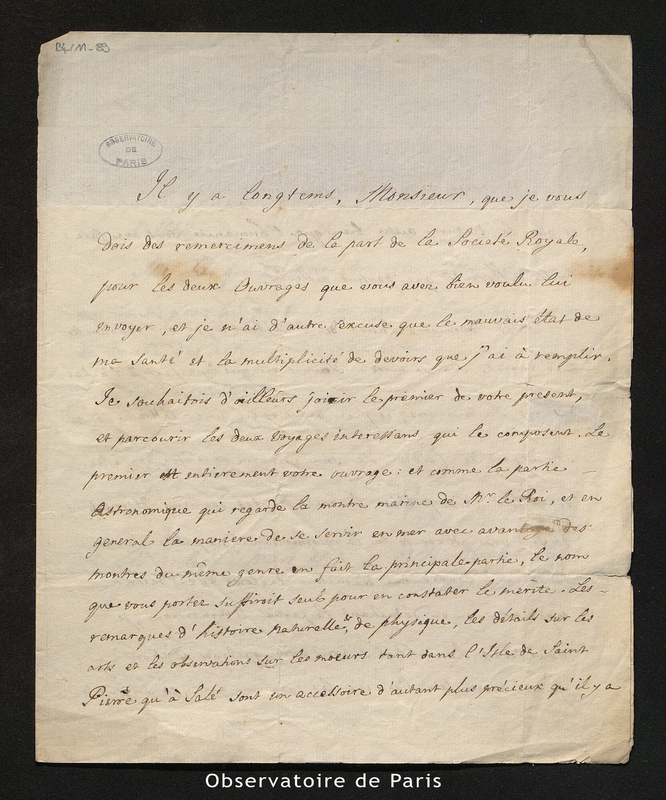 B4/M-83
OBSERVATOIRE
DE
PARIS
Il y a longtems, Monsieur, que je vous
dois des remercimens de la part de la Societé Royale,
pour les deux Ouvrages que vous avez bien voulu lui
envoyer, et je n'ai d'autre excuse que le mauvais état de
ma santé et la multiplicité de devoirs que j'ai à remplir.
Je souhaitois d'ailleurs joüir le premier de votre present,
et parcourir les deux voyages interessans qui le composent. Le
premier est entierement votre ouvrage: et comme la partie
Astronomique qui regarde la montre marine de Mr. le Roi, et en
general la maniere de se servir en mer avec avantage des
montres du même genre en fait la principale partie, le nom
que vous portez suffiroit seul pour en constater le merite. Les
remarques d'histoire naturelle, de physique, les détails sur les
arts et les observations sur les moeurs tant dans l'Isle de Saint
Pierre qu'à Salé sont un accessoire d'autant plus précieux qu'il y a
Observatoire de Paris